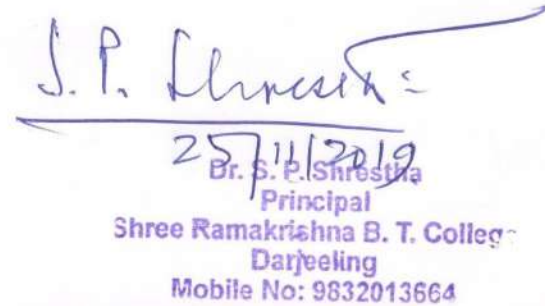 S. P. Shrestha
25/11/2019
Dr. S. P. Shrestha
Principal
Shree Ramakrishna B. T. College
Darjeeling
Mobile No: 9832013664